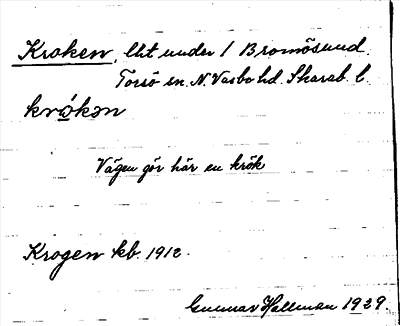 Kroken, lht under 1 Bromösund.
Torsö sn. N. Vadbo hd. Skarab. l.
krọ́kən
Vägen gör här en krök
Krogen kb. 1912.
Gunnar Hallman 1929.